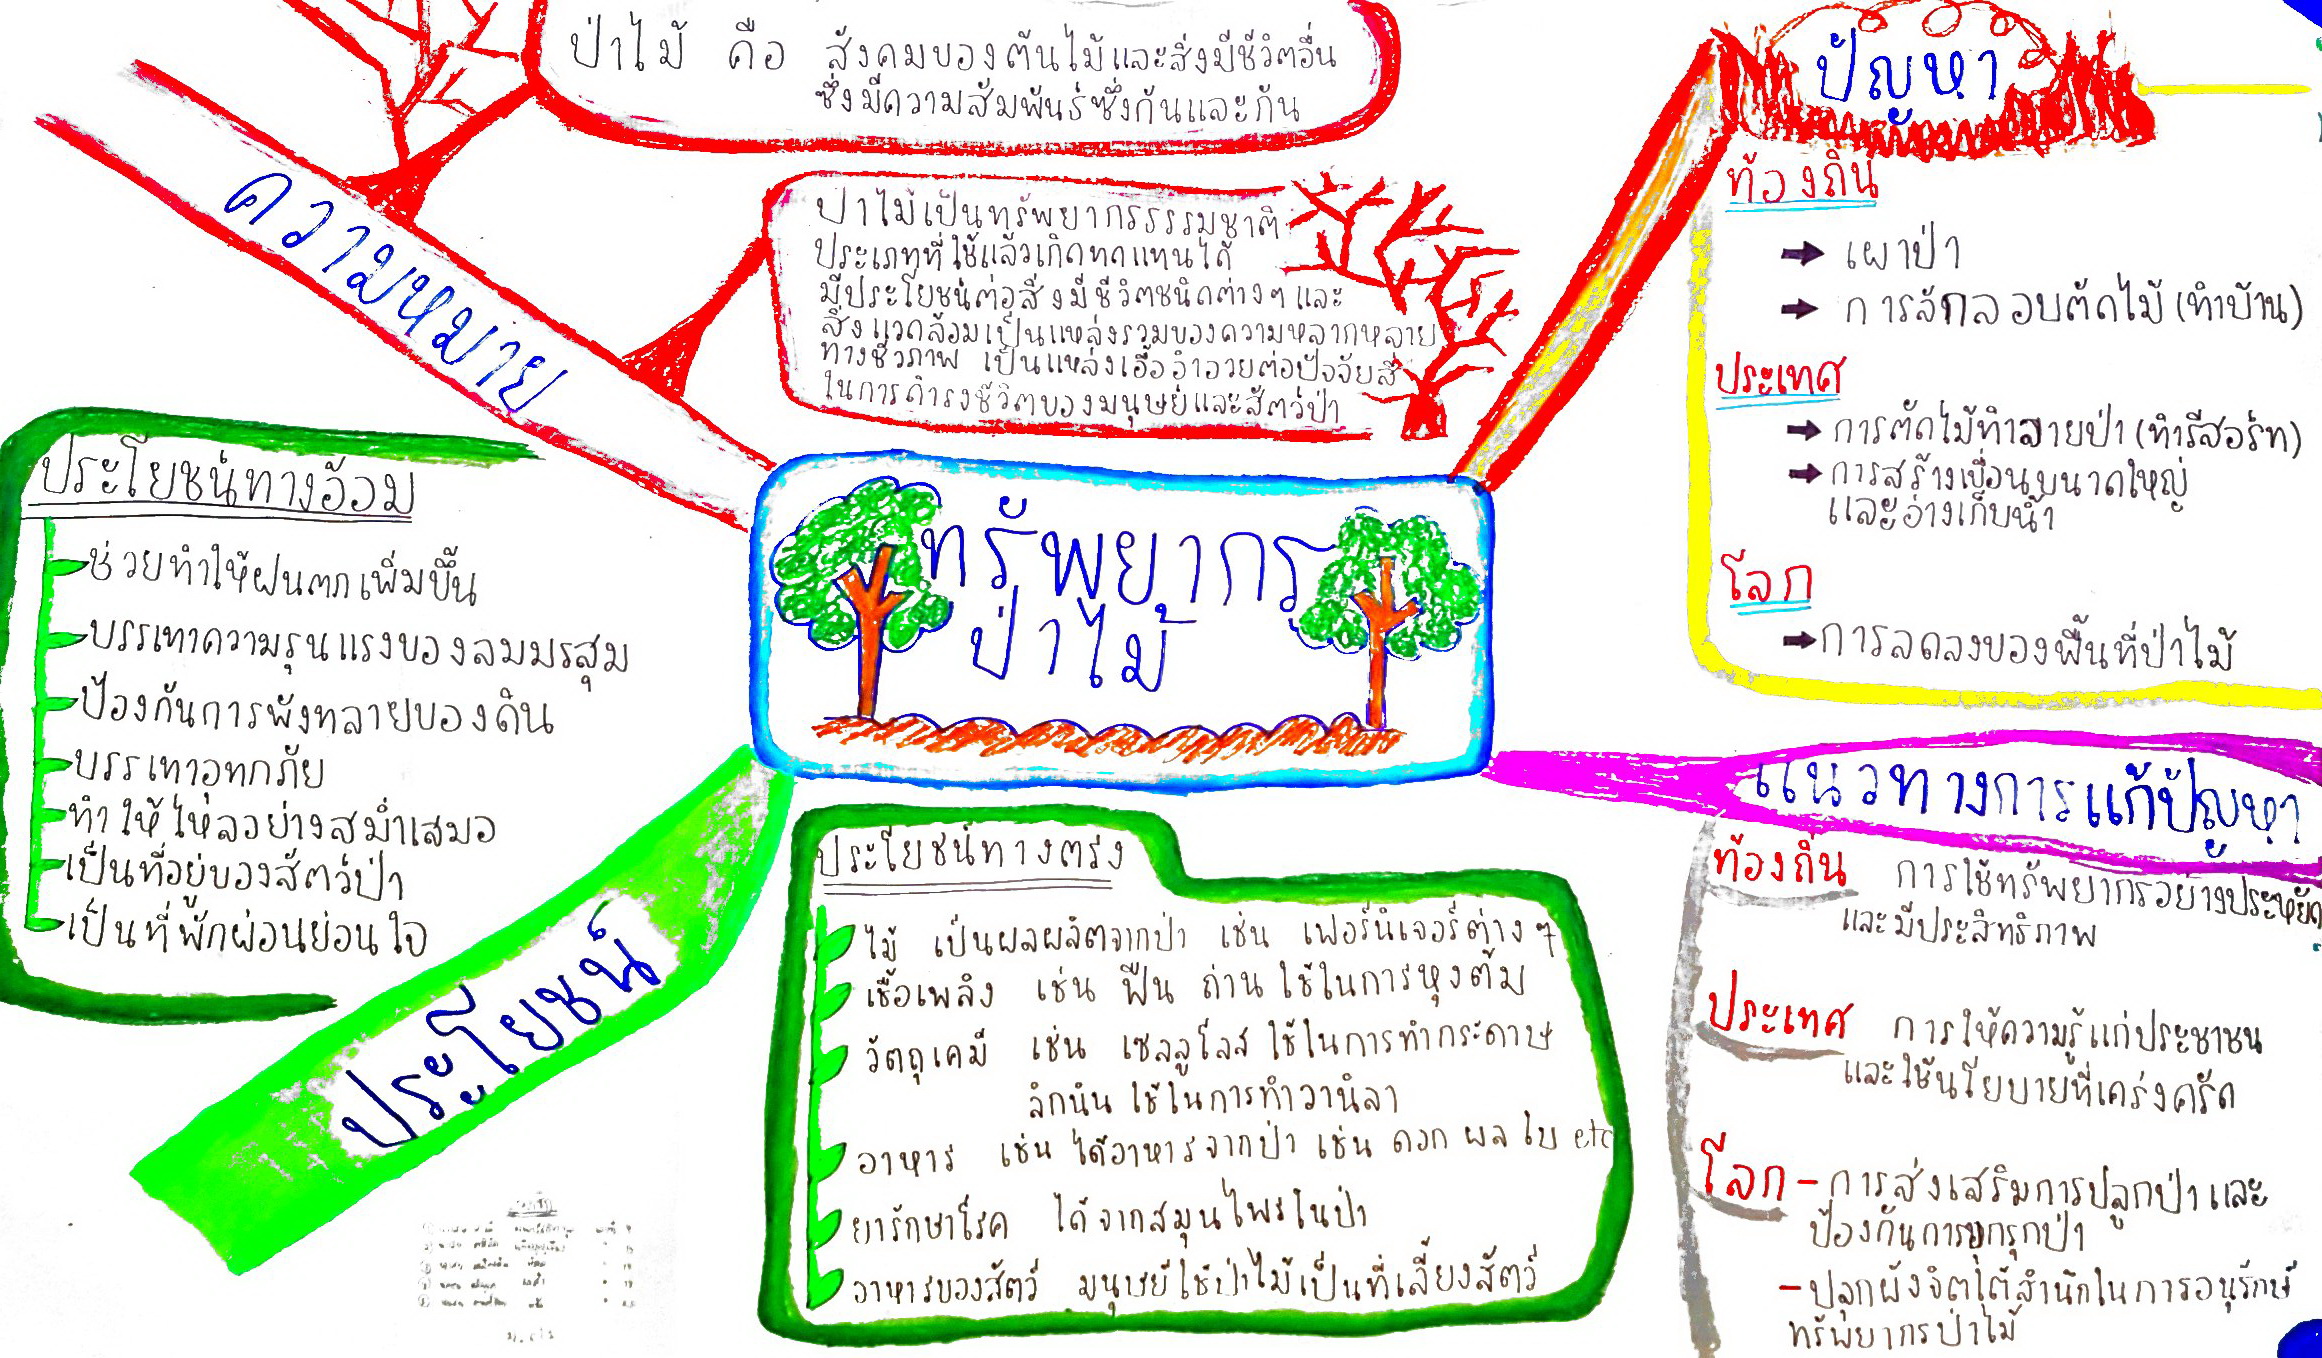 ทรัพยากร
ป่าไม้
ความหมาย
ป่าไม้ คือ สังคมของต้นไม้และสิ่งมีชีวิตอื่น
ซึ่งมีความสัมพันธ์ซึ่งกันและกัน
ป่าไม้เป็นทรัพยากรธรรมชาติ
ประเภทที่ใช้แล้วเกิดทดแทนได้
มีประโยชน์ต่อสิ่งมีชีวิตชนิดต่างๆและ
สิ่งแวดล้อมเป็นแหล่งรวมของความหลากหลาย
ทางชีวภาพ เป็นแหล่งเอื้ออำอวยต่อปัจจัยสี่
ในการดำรงชีวิตของมนุษย์และสัตว์ป่า
ปัญหา
ท้องถิ่น
เผาป่า
การลักลอบตัดไม้ (ทำบ้าน)
ประเทศ
การตัดไม้ทำลายป่า (ทำรีสอร์ท)
การสร้างเขื่อนขนาดใหญ่
และอ่างเก็บน้ำ
โลก
การลดลงของพื้นที่ป่าไม้
แนวทางการแก้ปัญหา
ท้องถิ่น การใช้ทรัพยากรอย่างประหยัด
และมีประสิทธิภาพ
ประเทศ การให้ความรู้แก่ประชาชน
และใช้นโยบายที่เคร่งครัด
โลก - การส่งเสริมการปลูกป่าและ
ป้องกันการบุกรุกป่า
- ปลูกฝังจิตใต้สำนึกในการอนุรักษ์
ทรัพยากรป่าไม้
ประโยชน์
ประโยชน์ทางอ้อม
ช่วยทำให้ฝนตกเพิ่มขึ้น
บรรเทาความรุนแรงของลมมรสุม
ป้องกันการพังทลายของดิน
บรรเทาอุทกภัย
ทำให้ไหลอย่างสม่ำเสมอ
เป็นที่อยู่ของสัตว์ป่า
เป็นที่พักผ่อนย่อนใจ
ประโยชน์ทางตรง
ไม้ เป็นผลผลิตจากป่า เช่น เฟอร์นิเจอร์ต่าง ๆ
เชื้อเพลิง เช่น ฟืน ถ่าน ใช้ในการหุงต้ม
วัตถุเคมี เช่น เซลลูโลส ใช้ในการทำกระดาษ
ลิกนิน ใช้ในการทำวานิลา
อาหาร เช่น ได้อาหารจากป่า เช่น ดอก ผล ใบ etc
ยารักษาโรค ได้จากสมุนไพรในป่า
อาหารของสัตว์ มนุษย์ใช้ป่าไม้เป็นที่เลี้ยงสัตว์